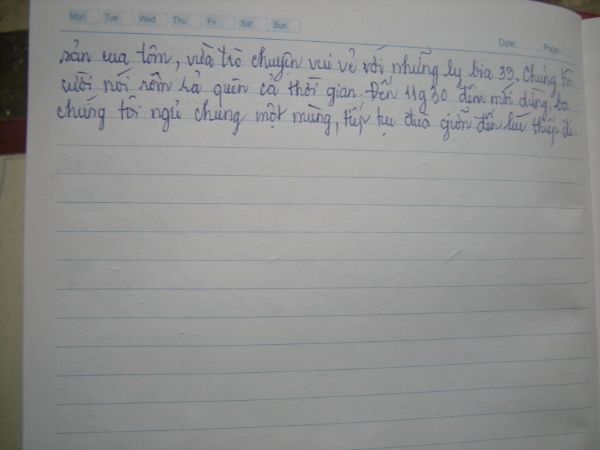 Mon Tue Wed Thu Fri Sat Sun
Date: Page:
sản cua tôm, vừa trò chuyện vui vẻ với những ly bia 33. Chúng tôi
cười nói rôm rả quên cả thời gian. Đến 11g30 đêm mới dừng, ba
chúng tôi ngủ chung một mùng, tiếp tục đùa giỡn đến lúc thiếp đi.